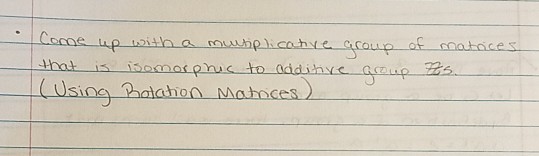 • Come up with a multiplicative group of matrices
that is isomorphic to additive group ℤ5.
(Using Rotation Matrices)